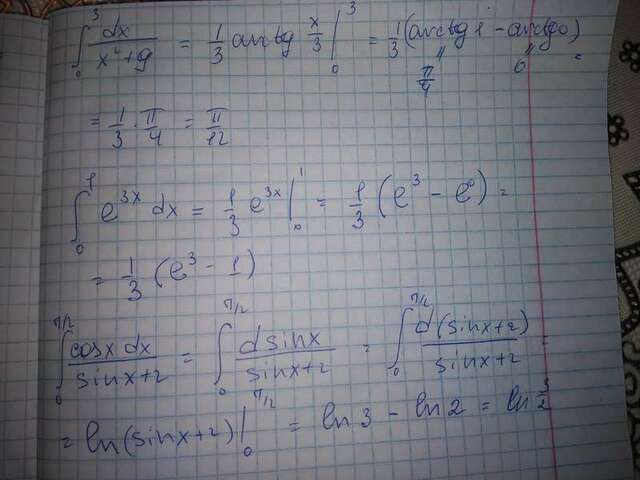 ∫₀³ dx/(x²+9) = 1/3 arctg x/3 |₀³ = 1/3 (arctg 1 - arctg 0) =
π/4 0
= 1/3 · π/4 = π/12
∫₀¹ e^(3x) dx = 1/3 e^(3x) |₀¹ = 1/3 (e³ - e⁰) =
= 1/3 (e³ - 1)
∫₀^(π/2) cosx dx/(sinx+2) = ∫₀^(π/2) d sinx/(sinx+2) = ∫₀^(π/2) d(sinx+2)/(sinx+2) =
= ln(sinx+2) |₀^(π/2) = ln 3 - ln 2 = ln 3/2